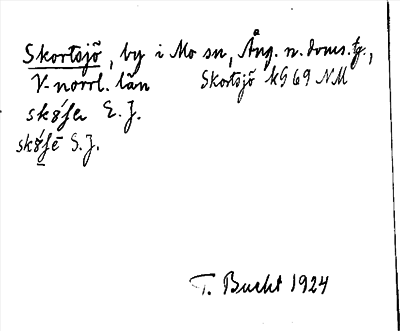 Skortsjö, by i Mo sn, Ång. n. doms.,
V-norrl. län Skortsjö KG 69 NM
E. J.
S. J.
T. Bucht 1924